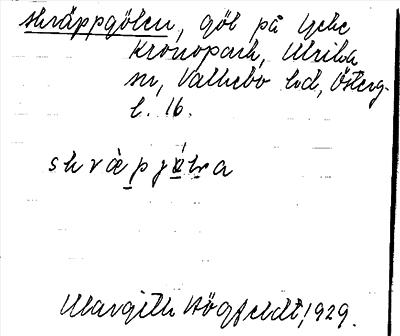 skräppgölen, göl på Yche
Kronopark, Ulrika
sn, Valkebo hd, Österg.
l. 16.
skràpjǻlra
Margith Högfeldt, 1929.